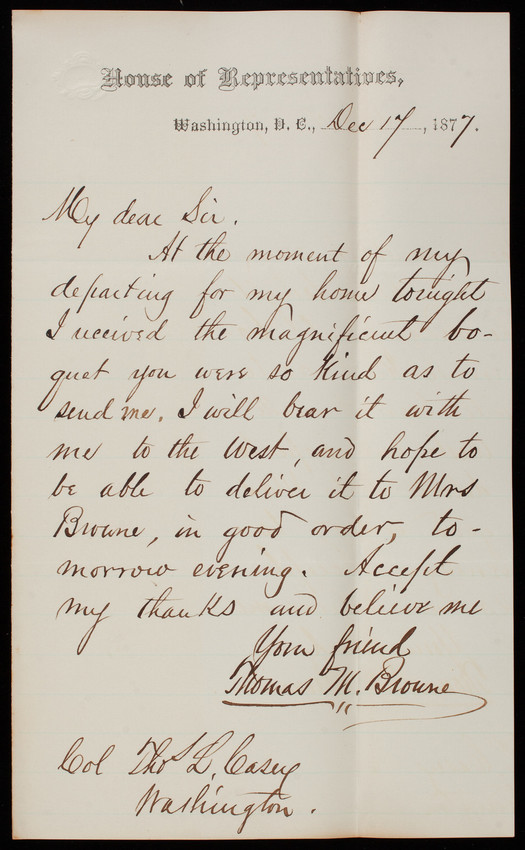 House of Representatives,
Washington, D. C., Dec 17, 1877.
My dear Sir.
At the moment of my
departing for my home tonight
I received the magnificent bo-
quet you were so kind as to
send me. I will bear it with
me to the West, and hope to
be able to deliver it to Mrs
Browne, in good order, to-
morrow evening. Accept
my thanks and believe me
Your friend
Thomas M. Browne
Col Thos L. Casey
Washington.